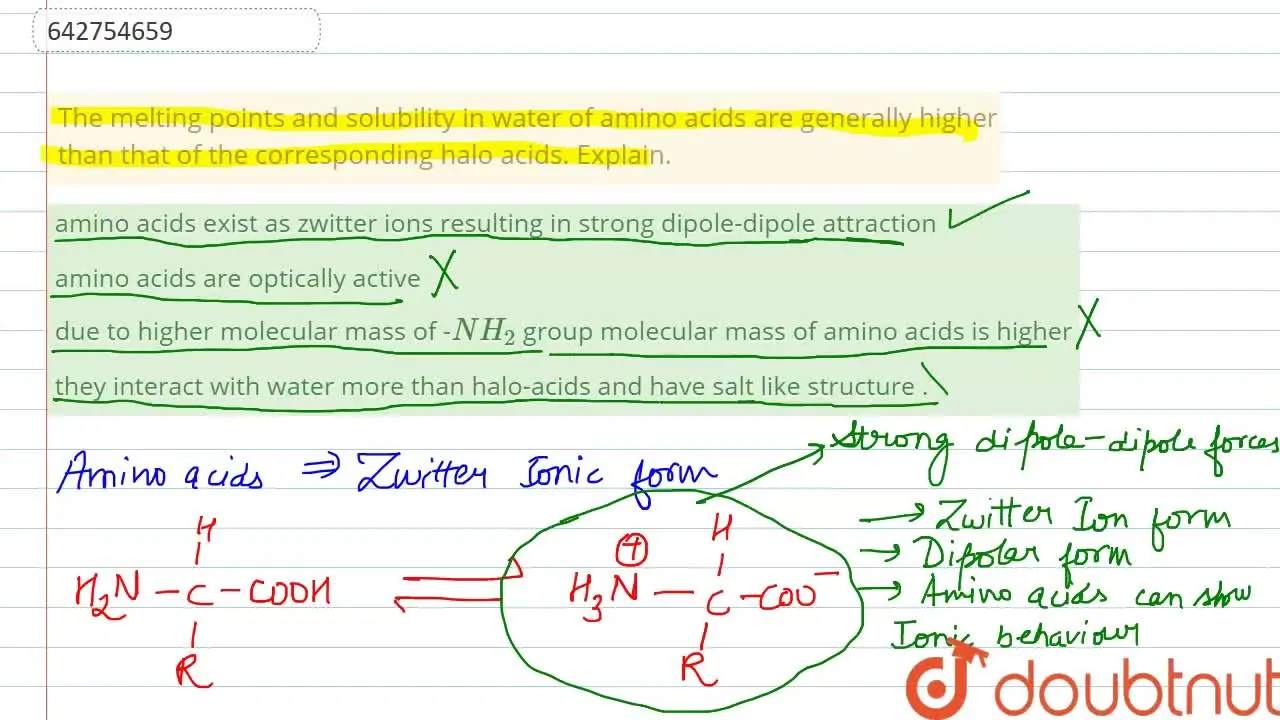 642754659
The melting points and solubility in water of amino acids are generally higher
than that of the corresponding halo acids. Explain.
amino acids exist as zwitter ions resulting in strong dipole-dipole attraction
amino acids are optically active
due to higher molecular mass of -NH₂ group molecular mass of amino acids is higher
they interact with water more than halo-acids and have salt like structure .
Strong dipole-dipole forces
Amino acids ⇒ Zwitter Ionic form
→ Zwitter Ion form
→ Dipolar form
→ Amino acids can show
Ionic behaviour
H
H₂N - C - COOH
R
H
⊕
H₃N - C - COO⁻
R
doubtnut